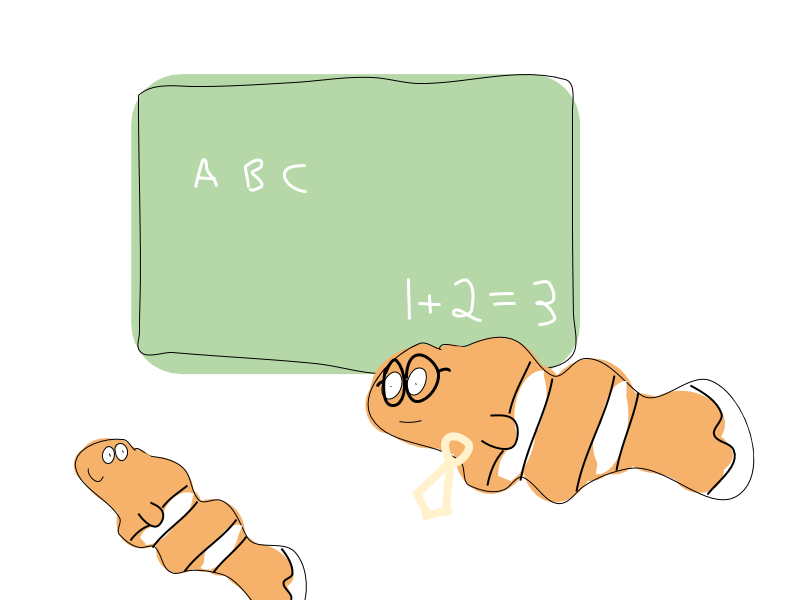 A B C
1+2=3